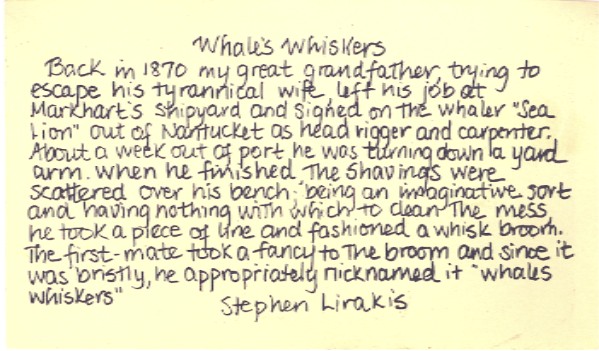 Whale's Whiskers
Back in 1870 my great grandfather, trying to
escape his tyrannical wife, left his job at
Markhart's shipyard and signed on the whaler "Sea
Lion" out of Nantucket as head rigger and carpenter.
About a week out of port he was turning down a yard
arm. When he finished the shavings were
scattered over his bench; being an imaginative sort
and having nothing with which to clean the mess
he took a piece of line and fashioned a whisk broom.
The first-mate took a fancy to the broom and since it
was bristly, he appropriately nicknamed it "whales
whiskers"
Stephen Lirakis